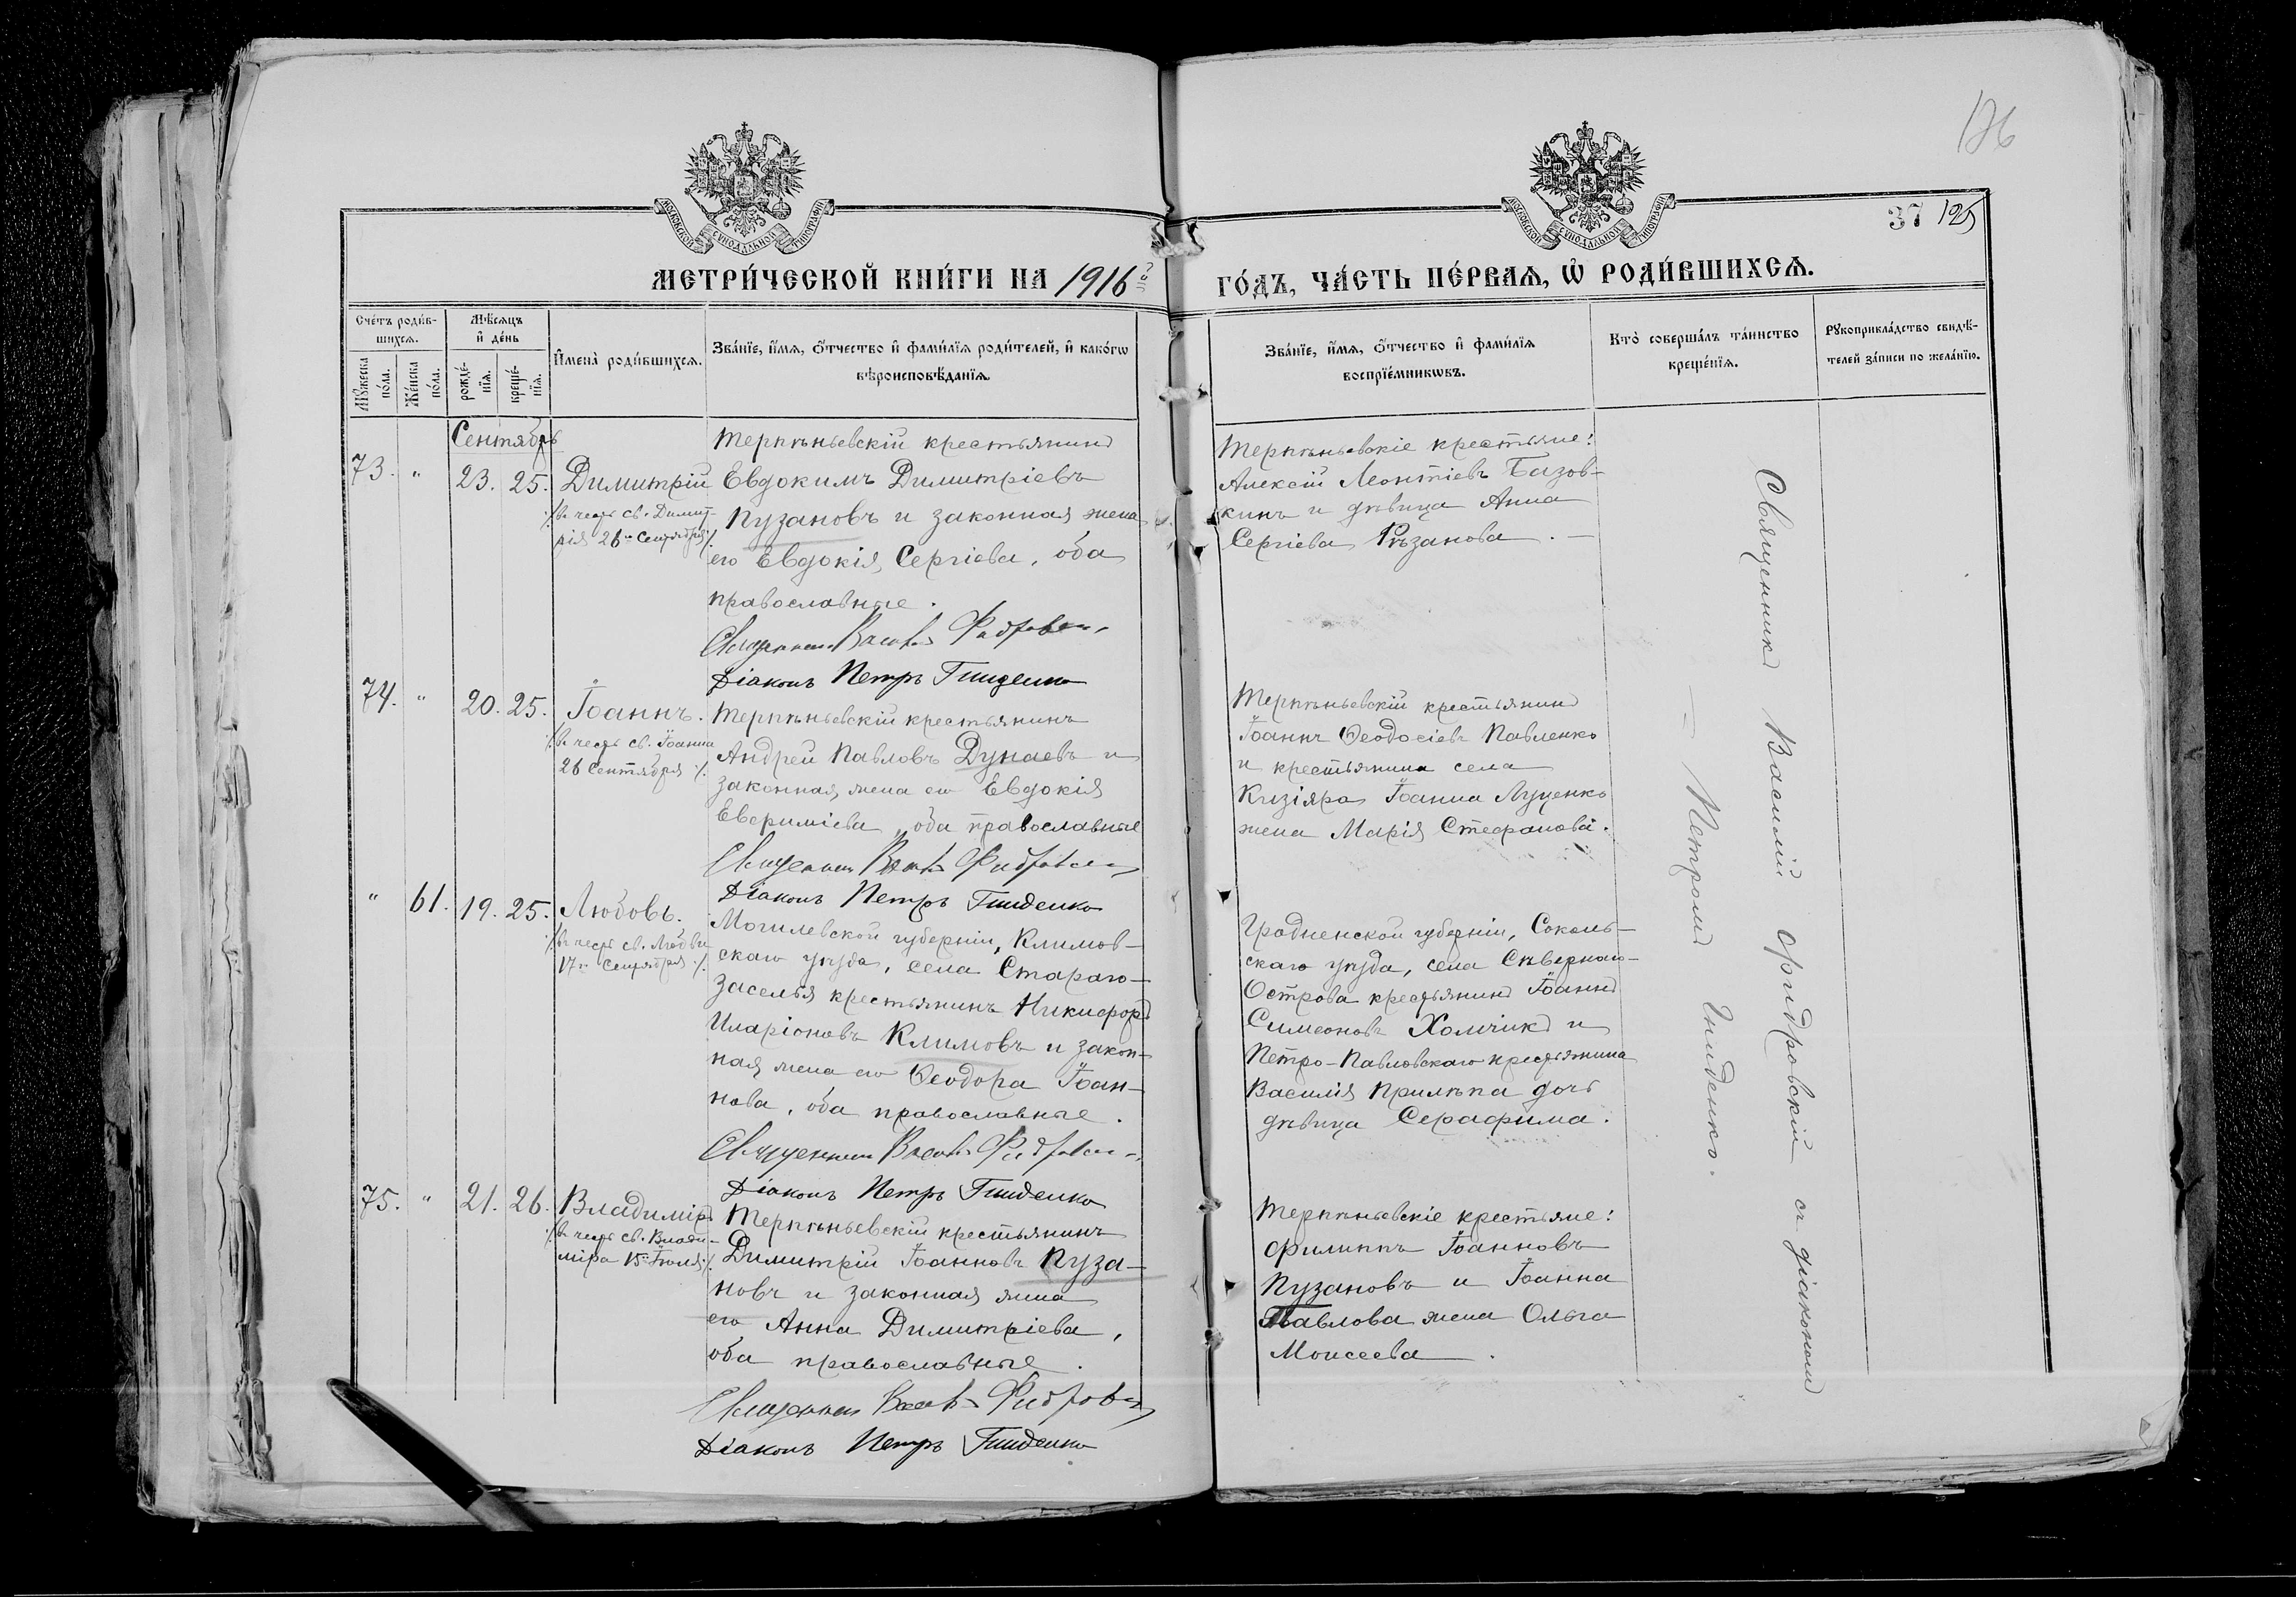 126
37 125
МОСКОВСКОЙ СѴНОДАЛЬНОЙ ТИПОГРАФІИ
МОСКОВСКОЙ СѴНОДАЛЬНОЙ ТИПОГРАФІИ
МЕТРИ́ЧЕСКОЙ КНИ́ГИ НА 1916
ГО́ДЪ, ЧА́СТЬ ПЕ́РВАЯ, Ѡ РОДИ́ВШИХСЯ.
Сче́тъ роди́в-
шихся.
Мꙋ́жеска по́ла.
Же́нска по́ла.
Мѣ́сяцъ
и҆ де́нь
рожде́-
нїя.
креще́-
нїя.
И҆мена̀ роди́вшихся.
Зва́нїе, и҆́мя, ѻ҆́тчество и҆ фами́лїя роди́телей, и҆ како́гѡ
вѣроисповѣ́данїя.
Зва́нїе, и҆́мя, ѻ҆́тчество и҆ фами́лїя
воспрїе́мникѡвъ.
Кто̀ соверша́лъ та́инство
креще́нїя.
Рꙋкоприкла́дство свидѣ́-
телей за́писи по жела́нїю.
Сентябрь
73. " 23. 25. Димитрій
/въ честь св. Димит-
рія 26 Сентября/.
Терпѣньевскій крестьянинъ
Евдокимъ Димитріевъ
Пузановъ и законная жена
его Евдокія Сергіева, оба
православные.
Священникъ
Діаконъ Петръ Гниденко
Терпѣньевскіе крестьяне:
Алексій Леонтіевъ Базов-
кинъ и дѣвица Анна
Сергіева Рѣзанова.
74. " 20. 25. Іоаннъ.
/въ честь св. Іоанна
26 Сентября/.
Терпѣньевскій крестьянинъ
Андрей Павловъ Дунаевъ и
законная жена его Евдокія
Евфиміева, оба православные
Священникъ
Діаконъ Петръ Гниденко
Терпѣньевскій крестьянинъ
Іоаннъ Ѳеодосіевъ Павленко
и крестьянина села
Кизіяра Іоанна Луценко
жена Марія Стефанова.
" 61. 19. 25. Любовь.
/въ честь св. Любви
17 Сентября/.
Могилевской губерніи, Климов-
скаго уѣзда, села Стараго-
Заселья крестьянинъ Никифоръ
Иларіоновъ Климовъ и закон-
ная жена его Ѳеодора Іоан-
нова, оба православные.
Священникъ
Діаконъ Петръ Гниденко
Гродненской губерніи, Соколь-
скаго уѣзда, села Сѣвернаго-
Острова крестьянинъ Іоаннъ
Симеоновъ Хомчикъ и
Петро-Павловскаго крестьянина
Василія Прилѣпа дочь
дѣвица Серафима.
75. " 21. 26. Владиміръ
/въ честь св. Влади-
міра 15 Іюля/.
Терпѣньевскій крестьянинъ
Димитрій Іоанновъ Пуза-
новъ и законная жена
его Анна Димитріева,
оба православные.
Священникъ
Діаконъ Петръ Гниденко
Терпѣньевскіе крестьяне:
Филиппъ Іоанновъ
Пузановъ и Іоанна
Павлова жена Ольга
Моисеева.
Священникъ Василій Фидровскій съ діакономъ
Петромъ Гниденко.